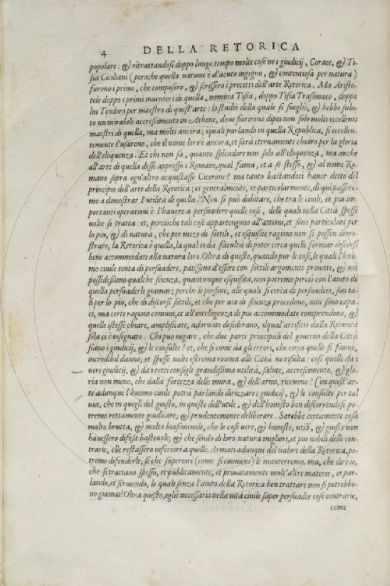 4 DELLA RETORICA
popolare: & ritrattandosi doppo longo tempo molte cose ne i giudicij, Corace, & Ti
sia Ciciliani (peroche quella natione è d'acuto ingegno, & contentiosa per natura)
furono i primi, che composero, & scrissero i precetti dell'arte Retorica. Ma Aristo-
tele doppo i primi inventori di quella, nomina Tisia, doppo Tisia Trasimaco, doppo
lui Teodoro per maestro di quest'arte: lo studio della quale si suegliò, & hebbe subi-
to un mirabile accrescimento in Athene, dove fiorirono dipoi non solo molti eccellenti
maestri di quella, ma molti ancora; i quali parlando in quella Republica, sì eccellen-
temente l'usarono, che il nome loro è ancora, et sarà eternamente chiaro per la gloria
dell'eloquenza. Et chi non sa, quanto splendore non solo all'eloquenza, ma anche
all'arte di quella desse appresso i Romani, qual fama, et à se stesso, & al nome Ro-
mano sopra ogn'altro acquistasse Cicerone? ma tanto bastandoci hauer detto del
principio dell'arte della Retorica; et generalmente, et particolarmente, di qui passere-
mo a dimostrar l'utilità di quella. Non si può dubitare, che tra le civili, et più im-
portanti operationi è l'havere a persuadere quelle cose, delle quali nella Città spesse
volte si tratta: et, percioche tali cose appartengono all'attioni, et sono particolari per
lo più, & di natura, che per mezo di sottili, et esquisite ragioni non si posson dimo-
strare, la Retorica è quella, la qual ci dà facultà di poter circa quelle formar discorsi
bene accommodati alla natura loro. Oltra di questo, quando pur le cose, le quali l'huo
mo civile tenta di persuadere, patissero d'essere con sottili argomenti provate, & noi
possedessimo qualche scienza, quantunque esquisita, non potremo perciò con l'aiuto di
quella persuaderle giamai: perche le persone, alle quali si cerca di persuadere, son ta-
li per lo più, che di discorsi sottili, et che per via di scienza procedono, non sono capa-
ci, ma certe ragioni communi, et all'intelligenza di più accommodate comprendono, &
quelle istesse chiare, amplificate, adornate desiderano, il qual artificio dalla Retorica
solo ci è insegnato. Chi può negare, che due parti principali del governo della Città
siano i giudicij, & le consulte? et, che sì come da gli errori, che circa quelle si fanno,
incredibil danno, et spesse volte estrema rovina alle Città ne risulta: così quelle da i
veri giudicij, & da i retti consigli grandissima utilità, salute, accrescimento, & glo-
ria non meno, che dalla fortezza delle mura, & dell'armi, ricevono? Con quest'ar-
te adunque l'huomo civile potrà parlando dirizzare i giudicij, & le consulte per tal
via, che in quegli del giusto, in queste dell'utile, & dell'honesto ben discorrendosi po-
tremo rettamente giudicare, & prudentemente deliberare. Sarebbe certamente cosa
molto brutta, & molto biasimevole, che le cose vere, & honeste, utili, & giuste non
havessero difesa bastevole; & che sendo di loro natura migliori, et più nobili delle con-
trarie, elle restassero inferiori a quelle. Armati adunque del valore della Retorica, po-
tremo difenderle, sì che superiori (come si convien) le manterremo. ma, che direm,
che si trattano spesso, et publicamente, et privatamente molt'altre materie, et par-
lando, et scrivendo, le quali senza l'aiuto della Retorica ben trattare non si potrebbo-
no giamai? Oltra questo, egli è necessario nella vita civile saper persuader cose contrarie,
come